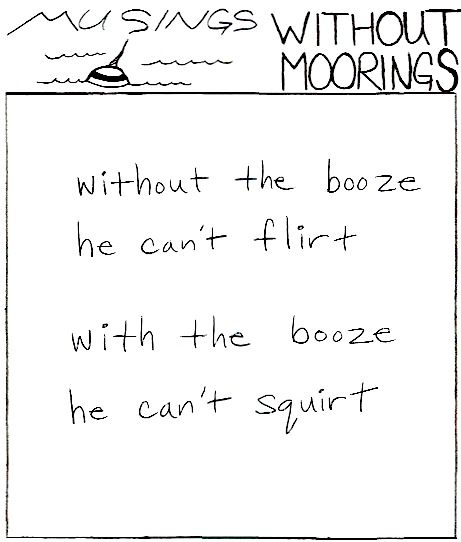 MUSINGS WITHOUT
MOORINGS
without the booze
he can't flirt
with the booze
he can't squirt